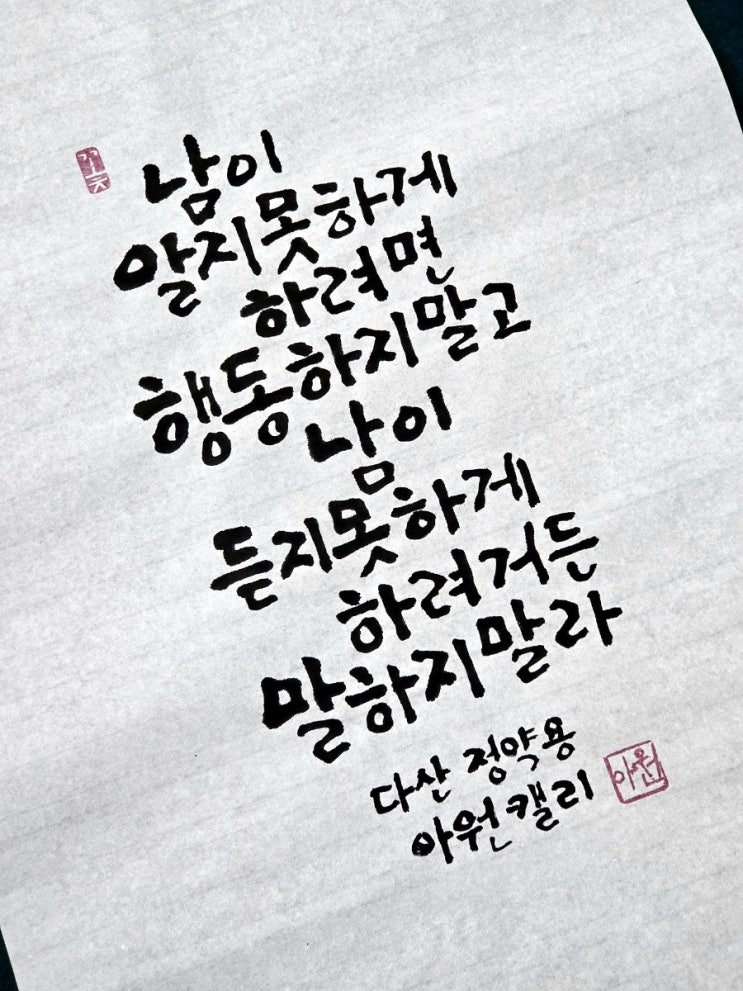 남이
알지못하게
하려면
행동하지말고
남이
듣지못하게
하려거든
말하지말라
다산 정약용
아원캘리
아원